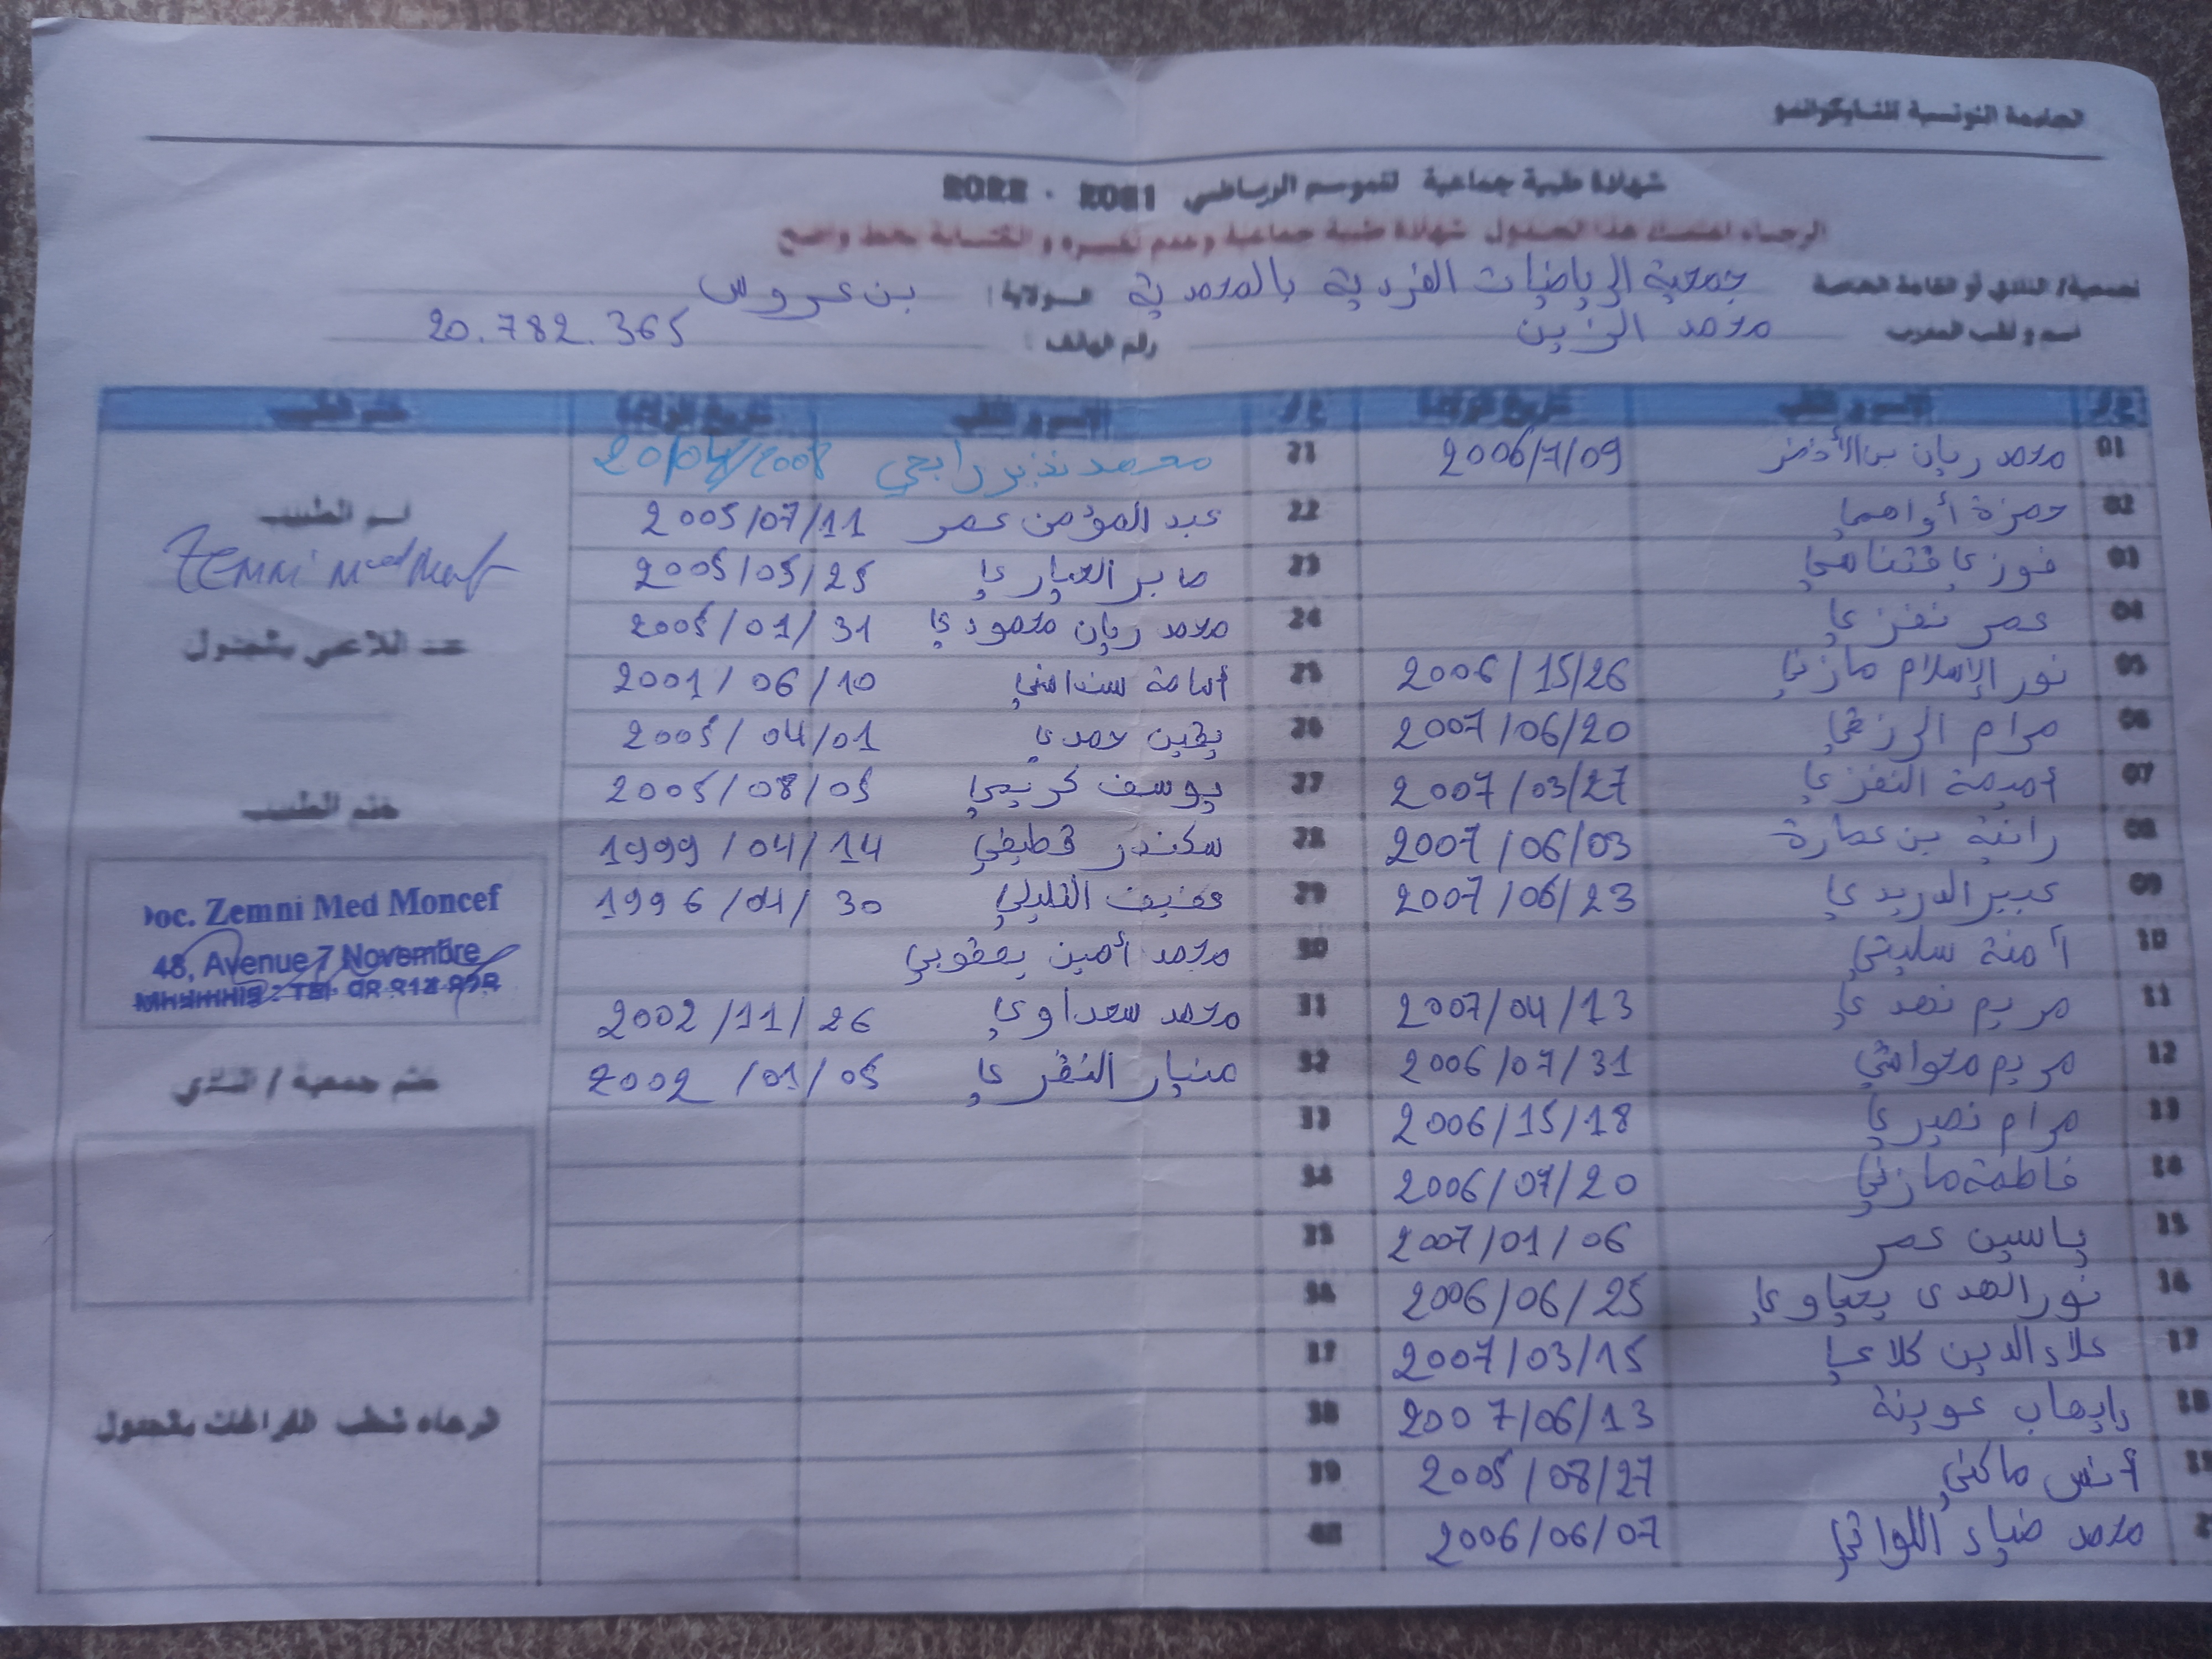 الجامعة التونسية للتايكواندو
شهادة طبية جماعية للموسم الرياضي 2021 - 2022
الرجاء اعتماد هذا الجدول شهادة طبية جماعية وعدم تغييره و الكتابة بخط واضح
جمعية الرياضات الفردية بالمحمدية الولاية: بن عروس
اسم و لقب المدرب محمد الزين رقم الهاتف: 20.782.365
ع/ر الاسم و اللقب تاريخ الولادة ع/ر الاسم و اللقب تاريخ الولادة ختم الطبيب
01 محمد ريان بن الأخضر 2006/7/09 21 محمد نذير رابحي 20/04/2008
02 حمزة 22 عبد المؤمن عمر 2005/07/11
03 فوزي 23 صابر العياري 2005/05/25
04 عمر نفزي 24 محمد ريان محمودي 2005/01/31
05 نور الإسلام مازني 2006/15/26 25 أسامة 2001/06/10
06 مرام الرزقي 2007/06/20 26 يقين حمدي 2005/04/01
07 أميمة النفزي 2007/03/27 27 يوسف كريمي 2005/08/05
08 رانية بن عمارة 2007/06/03 28 سكندر قطيفي 1999/04/14
09 عبير الدريدي 2007/06/23 29 عفيف التليلي 1996/04/30
10 آمنة سليتي 30 محمد أمين يعقوبي
11 مريم نصري 2007/04/13 31 محمد سعداوي 2002/11/26
12 مريم 2006/07/31 32 منيار النفزي 2002/01/05
13 مرام نصيري 2006/15/18 33
14 فاطمة مازني 2006/07/20 34
15 ياسين عمر 2007/01/06 35
16 نور الهدى يحياوي 2006/06/25 36
17 علاء الدين كلاعي 2007/03/15 37
18 إيهاب عوينة 2007/06/13 38
أنس ماكني 2005/08/27 39
محمد ضياء اللواتي 2006/06/07 40
اسم الطبيب
Zemni Med
عدد اللاعبين بالجدول
ختم الطبيب
Doc. Zemni Med Moncef
48, Avenue 7 Novembre
ختم جمعية / النادي
الرجاء شطب الفراغات بالجدول